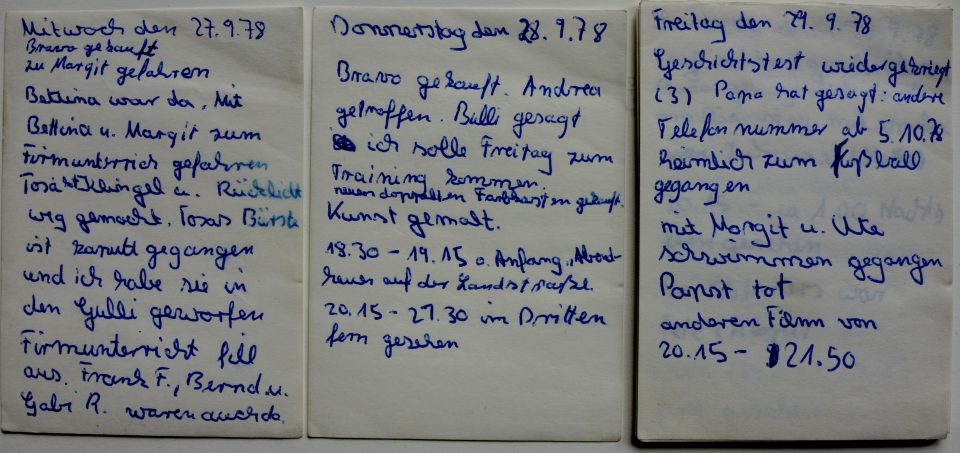 Mitwoch den 27.9.78
Bravo gekauft
zu Margit gefahren
Bettina war da, Mit
Bettina u. Margit zum
Firmunterrich gefahren
hat Klingel u. Rücklicht
weg gemacht. Tosas Bürste
ist kaputt gegangen
und ich habe sie in
den Gulli geworfen
Firmunterricht fill
aus. Frank F., Bernd u.
Gabi R. waren auch da.
Donnerstag den 28.9.78
Bravo gekauft. Andrea
getroffen. Bulli gesagt
ich solle Freitag zum
Training kommen.
neuen doppelten Farbkasten gekauft.
Kunst gemalt.
18.30 - 19.15 o. Anfang "Abent
heuer auf der Landstraße.
20.15 - 21.30 im Dritten
fern gesehen
Freitag den 29.9.78
Geschichtstest wiedergekriegt
(3) Papa hat gesagt: andere
Telefonnummer ab 5.10.78
heimlich zum Fußball
gegangen
mit Margit u. Ute
schwimmen gegangen
Papst tot
anderen Film von
20.15 - 21.50